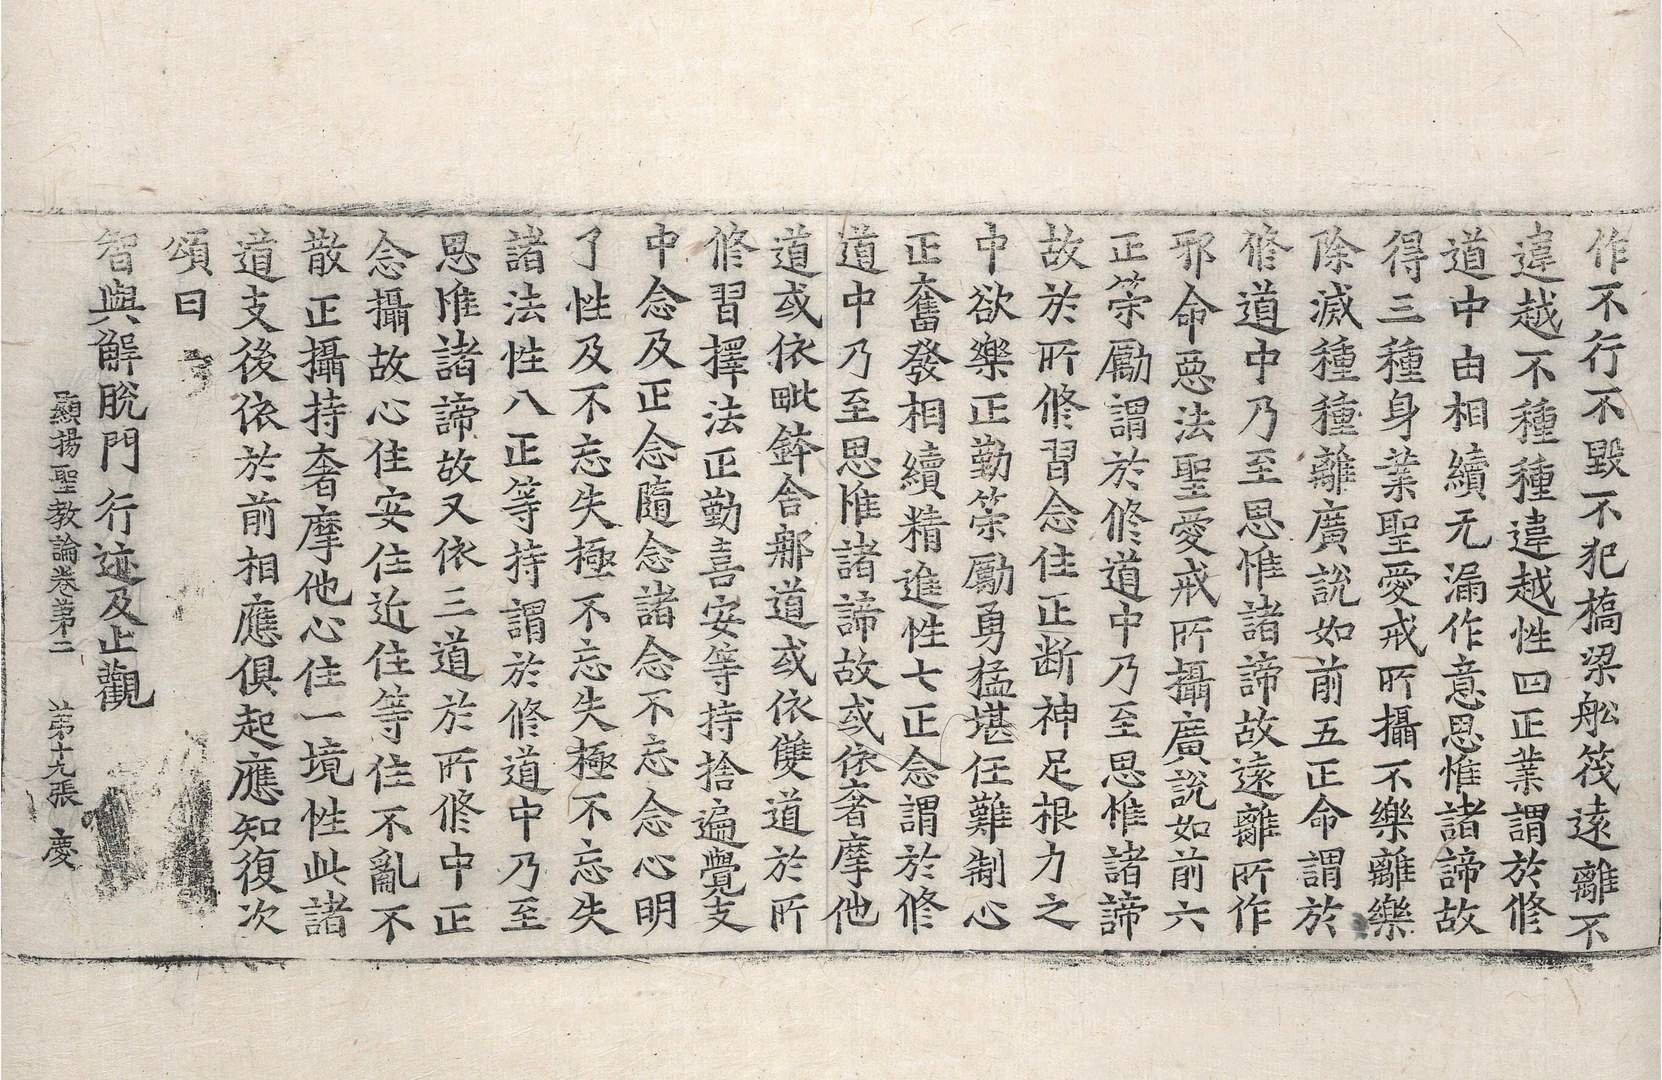 作不行不毀不犯橋梁舩筏遠離不
違越不種種違越性四正業謂於修
道中由相續无漏作意思惟諸諦故
得三種身業聖愛戒所攝不樂離樂
除滅種種離廣說如前五正命謂於
修道中乃至思惟諸諦故遠離所作
邪命惡法聖愛戒所攝廣說如前六
正策勵謂於修道中乃至思惟諸諦
故於所修習念住正断神足根力之
中欲樂正勤策勵勇猛堪任難制心
正奮發相續精進性七正念謂於修
道中乃至思惟諸諦故或依奢摩他
道或依毗鉢舍那道或依雙道於所
修習擇法正勤喜安等持捨遍覺支
中念及正念隨念諸念不忘念心明
了性及不忘失極不忘失極不忘失
諸法性八正等持謂於修道中乃至
思惟諸諦故又依三道於所修中正
念攝故心住安住近住等住不亂不
散正攝持奢摩他心住一境性此諸
道支後依於前相應俱起應知復次
頌曰
智與解脫門 行迹及止觀
顯揚聖教論卷第二 第十九張 慶